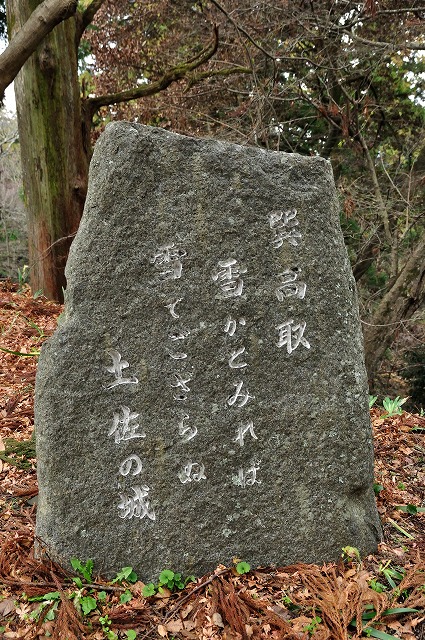 巽高取
雪かとみれば
雪でござらぬ
土佐の城